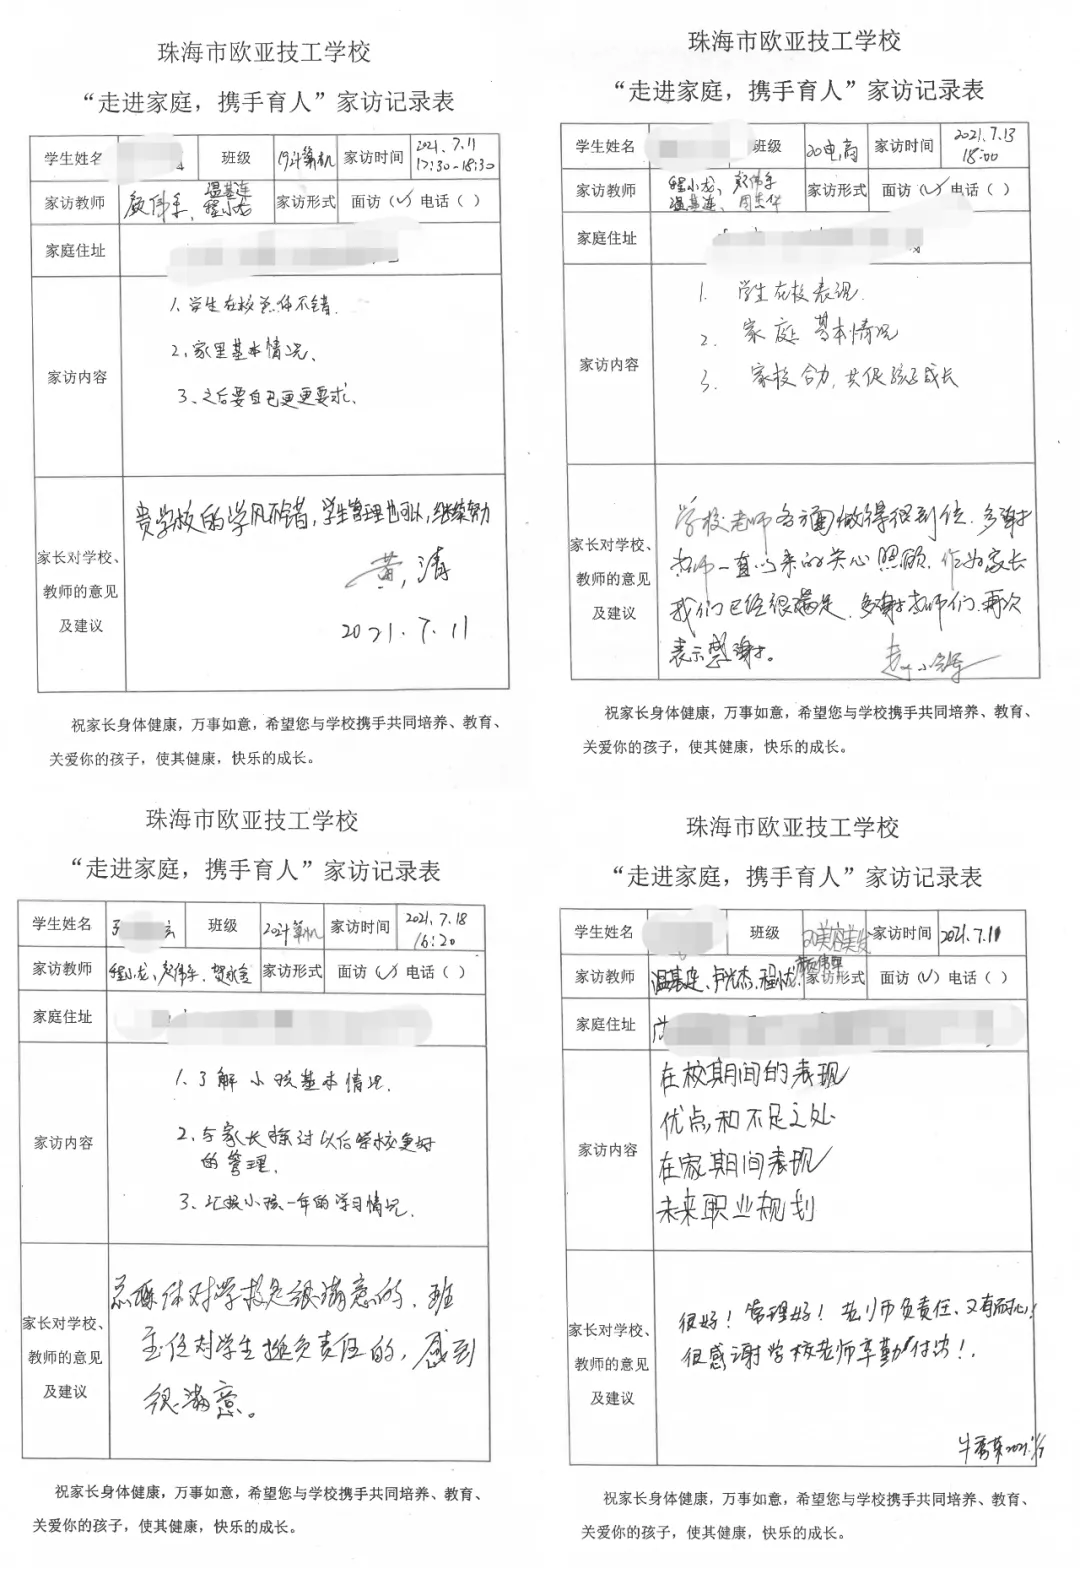 珠海市欧亚技工学校
“走进家庭，携手育人”家访记录表
学生姓名 班级 家访时间 2021.7.11
17:30-18:30
家访教师 温基连
程小龙 家访形式 面访（✓）电话（ ）
家庭住址
家访内容
1、学生在校总体不错.
2、家里基本情况、
3、之后要自己更更要求、
家长对学校、
教师的意见
及建议
贵学校的学风不错，学生管理也可以，继续努力
黄清
2021.7.11
祝家长身体健康，万事如意，希望您与学校携手共同培养、教育、
关爱你的孩子，使其健康，快乐的成长。
珠海市欧亚技工学校
“走进家庭，携手育人”家访记录表
学生姓名 班级 20电商 家访时间 2021.7.13
18:00
家访教师 程小龙、
温基连、 家访形式 面访（✓）电话（ ）
家庭住址
家访内容
1. 学生在校表现.
2. 家庭基本情况
3. 家校合力，共促孩子成长
家长对学校、
教师的意见
及建议
学校老师各方面做得很到位.多谢
老师一直以来的关心照顾.作为家长
我们已经很满足.多谢老师们.再次
表示感谢。
祝家长身体健康，万事如意，希望您与学校携手共同培养、教育、
关爱你的孩子，使其健康，快乐的成长。
珠海市欧亚技工学校
“走进家庭，携手育人”家访记录表
学生姓名 班级 家访时间 2021.7.18
16:20
家访教师 程小龙、 家访形式 面访（✓）电话（ ）
家庭住址
家访内容
1、了解小孩基本情况.
2、与家长探讨以后学校更好
的管理.
3、汇报小孩一年的学习情况.
家长对学校、
教师的意见
及建议
总体对学校是很满意的.班
主任对学生挺负责任的，感到
很满意。
祝家长身体健康，万事如意，希望您与学校携手共同培养、教育、
关爱你的孩子，使其健康，快乐的成长。
珠海市欧亚技工学校
“走进家庭，携手育人”家访记录表
学生姓名 班级 家访时间 2021.7.11
家访教师 温基连、卢光杰、程小龙、 家访形式 面访（✓）电话（ ）
家庭住址
家访内容
在校期间的表现
优点，和不足之处
在家期间表现
未来职业规划
家长对学校、
教师的意见
及建议
很好！管理好！老师负责任、又有耐心！
很感谢学校老师辛勤付出！.
祝家长身体健康，万事如意，希望您与学校携手共同培养、教育、
关爱你的孩子，使其健康，快乐的成长。